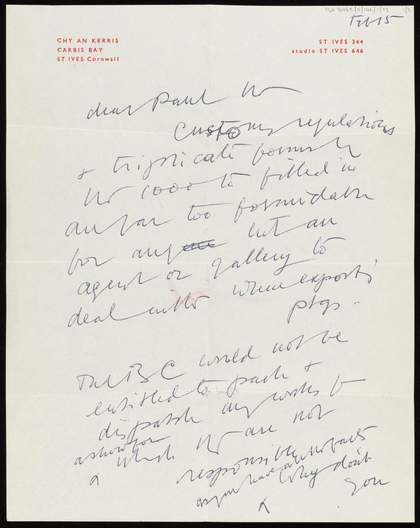 Feb 15
CHY AN KERRIS
CARBIS BAY
ST IVES Cornwall
ST IVES 344
studio ST IVES 646
dear Paul the
Customs regulations
& triplicate forms in
to filled in
are far too formidable
for any but an
agent or gallery to
deal with when
ptgs.
The B C would not be
entitled to pack &
dispatch any works to
a show for
which are not
responsible
as you have
Why don't
you